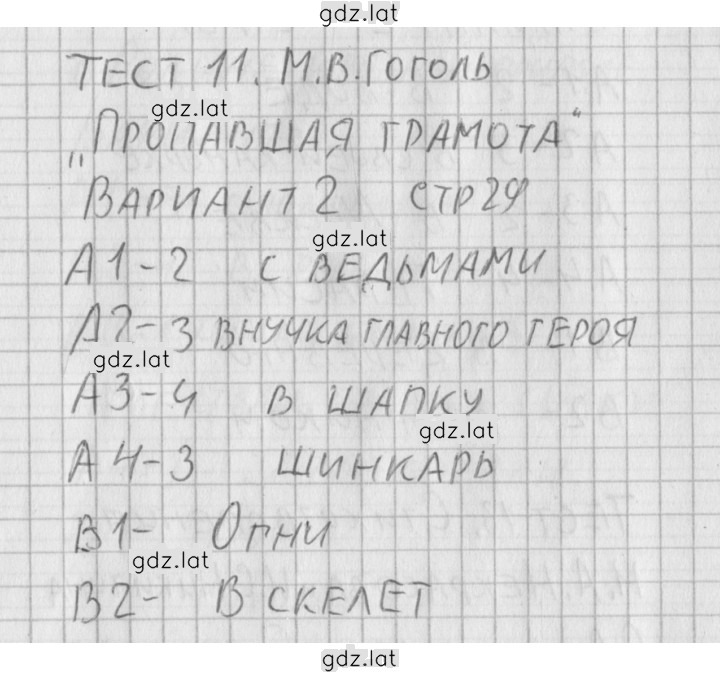 gdz.lat
ТЕСТ 11. М.В.ГОГОЛЬ
gdz.lat
„ПРОПАВШАЯ ГРАМОТА"
ВАРИАНТ 2 СТР 29
gdz.lat
А1-2 С ВЕДЬМАМИ
А2-3 ВНУЧКА ГЛАВНОГО ГЕРОЯ
gdz.lat
А3-4 В ШАПКУ
gdz.lat
А4-3 ШИНКАРЬ
В1- ОГНИ
gdz.lat
В2- В СКЕЛЕТ
gdz.lat